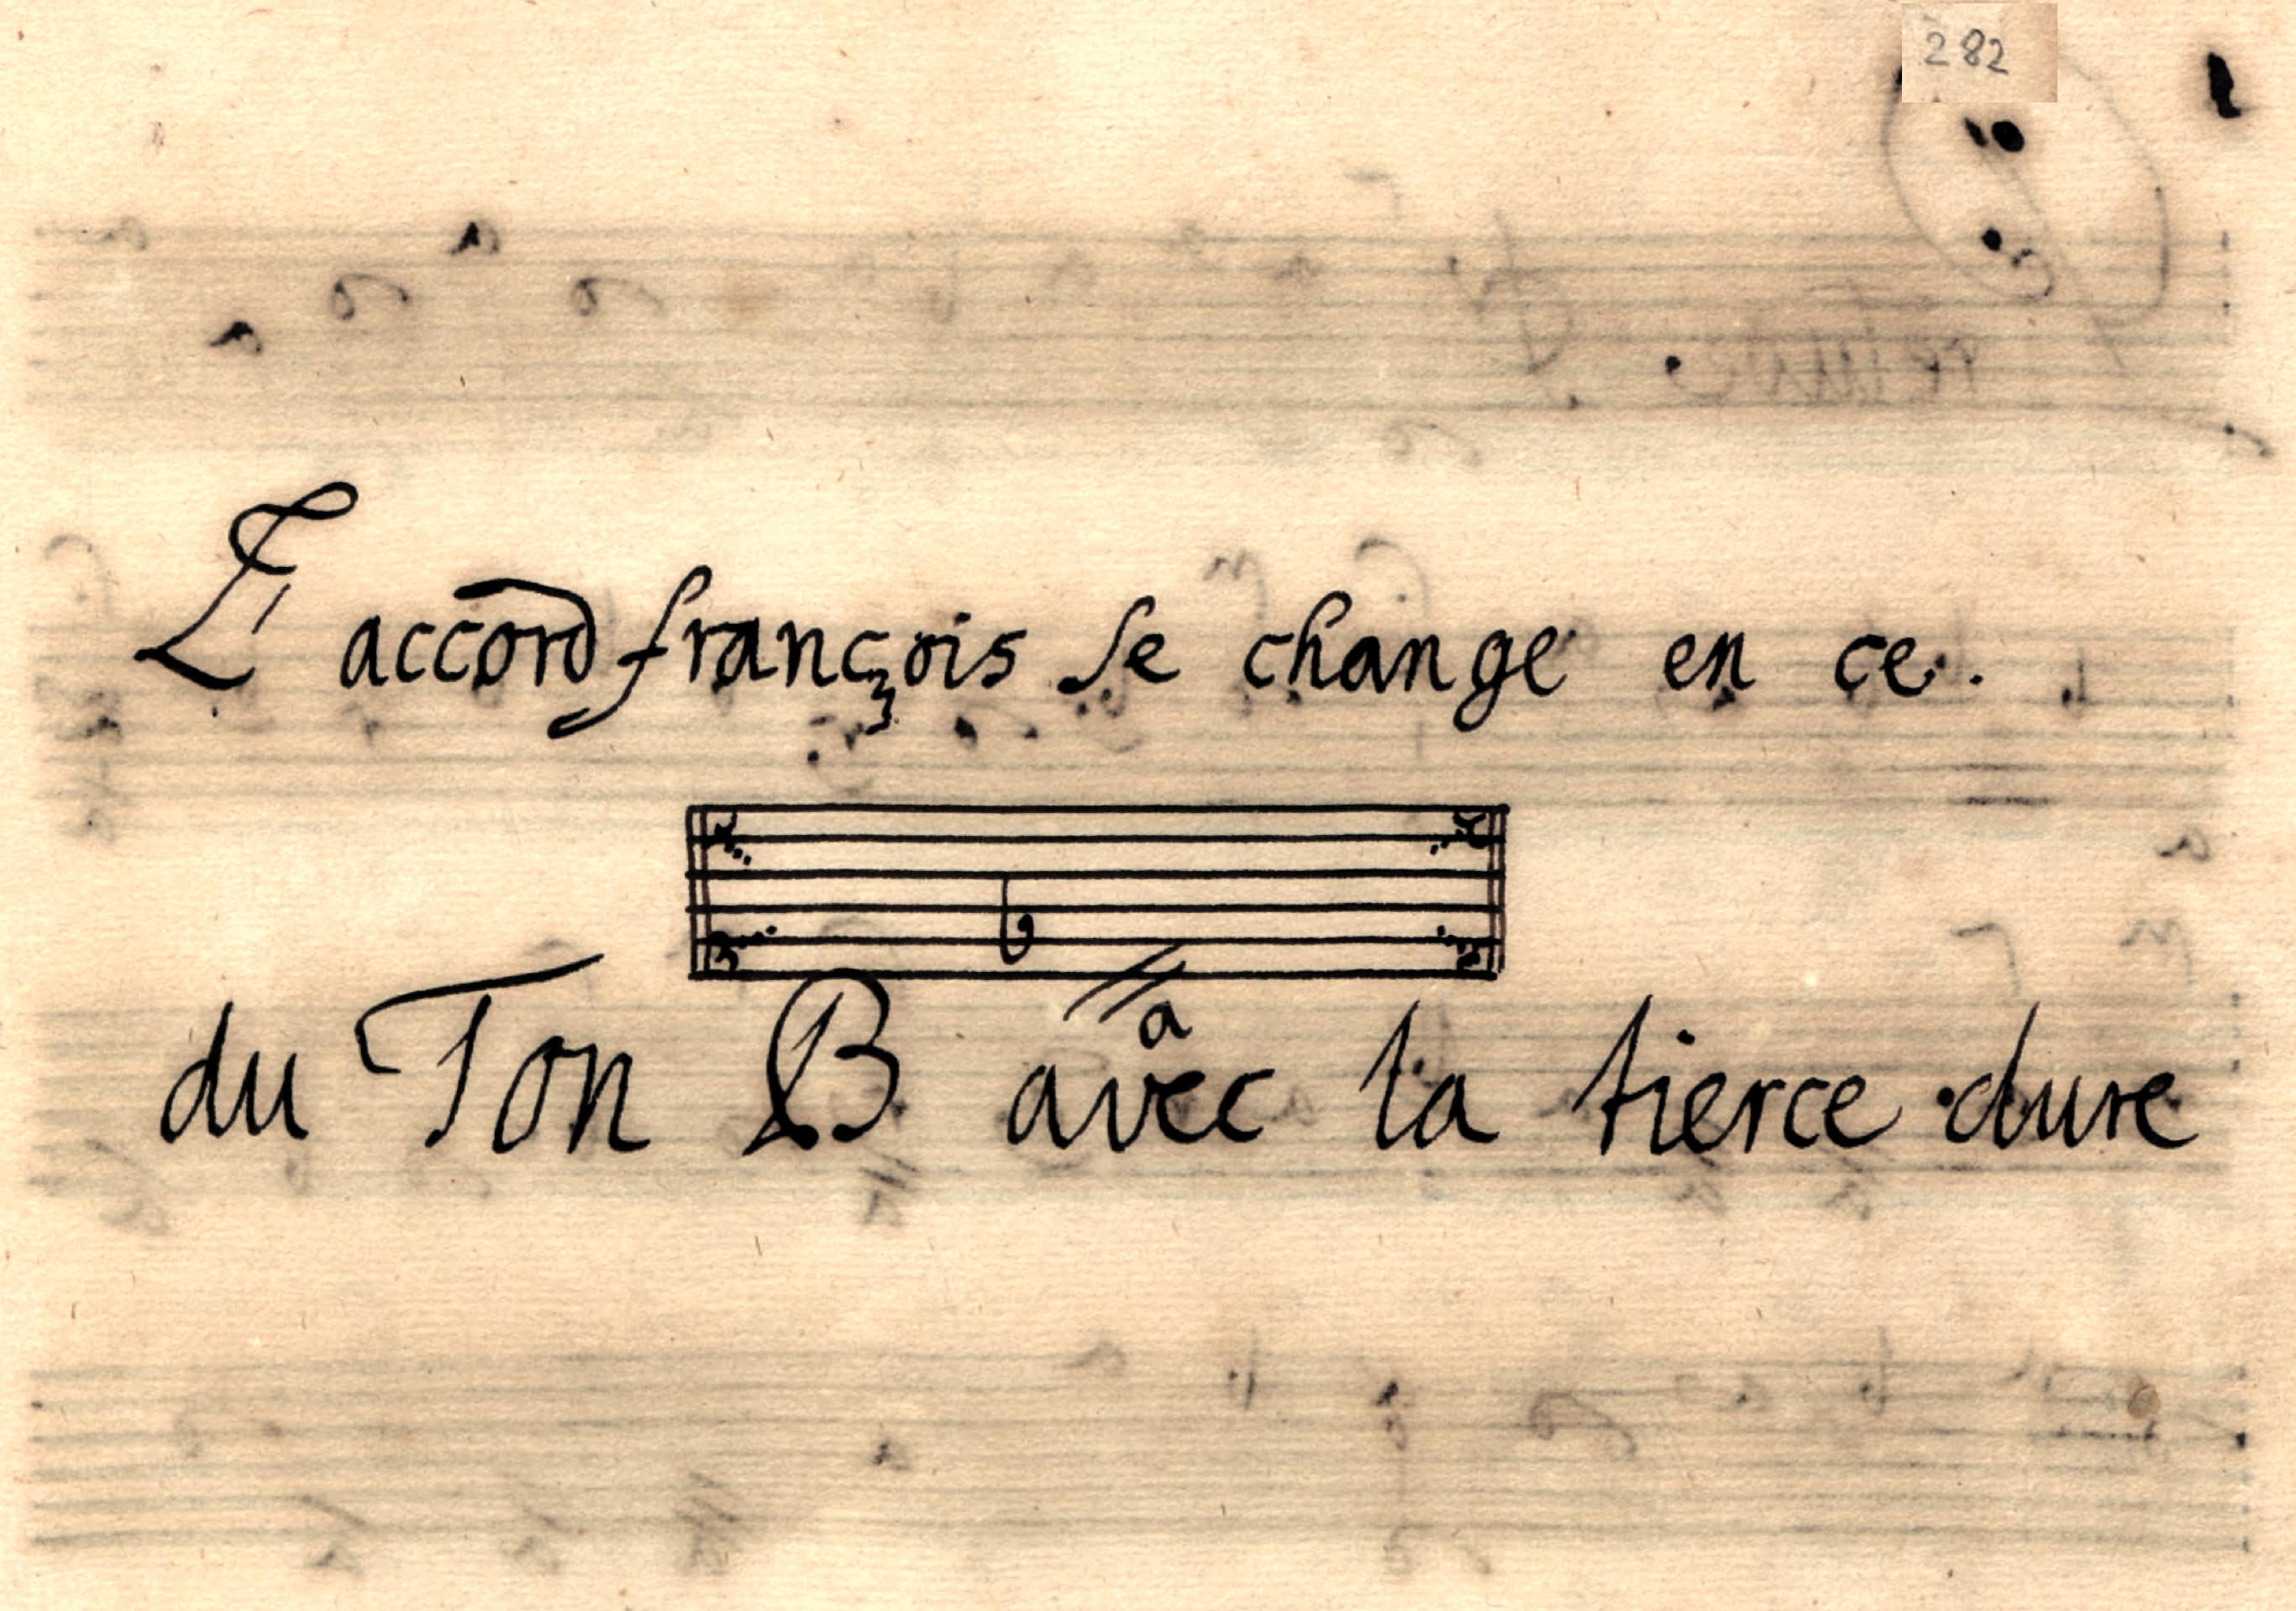 282
L'accord françois se change en ce.
b
a
du Ton B avec la tierce dure